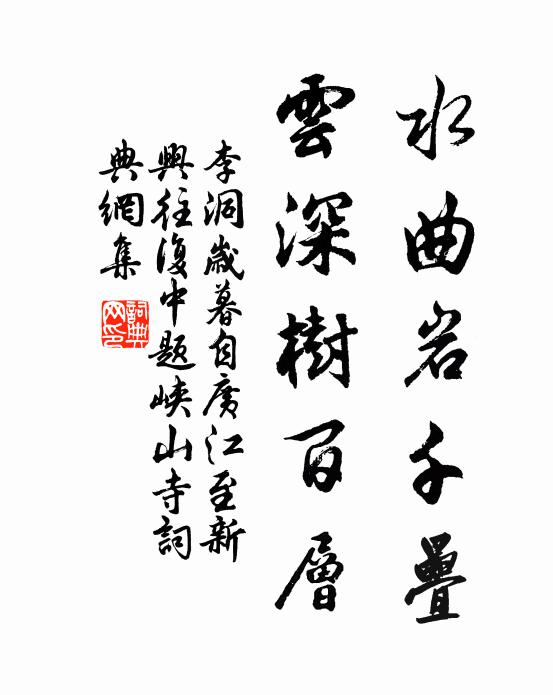 水曲岩千疊
雲深樹百層
李洞歲暮自廣江至新
興往復中題峽山寺詞
典網集
詞典網印